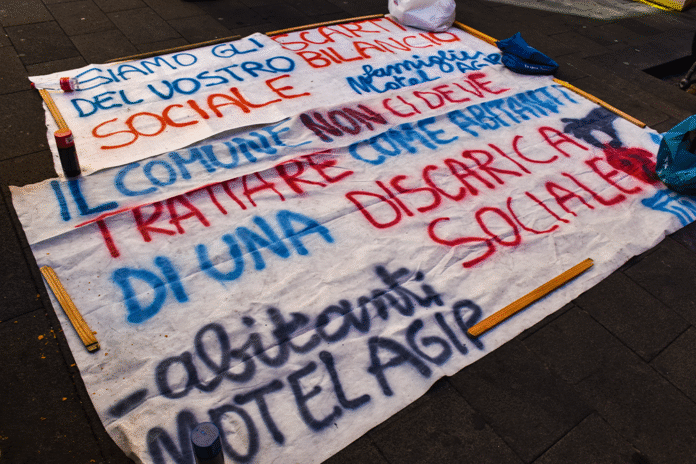 SIAMO GLI SCARTI
DEL VOSTRO BILANCIO
SOCIALE
famiglie
MOTEL AGIP
IL COMUNE NON CI DEVE
TRATTARE COME ABITANTI
DI UNA DISCARICA
SOCIALE
-abitanti
MOTEL AGIP